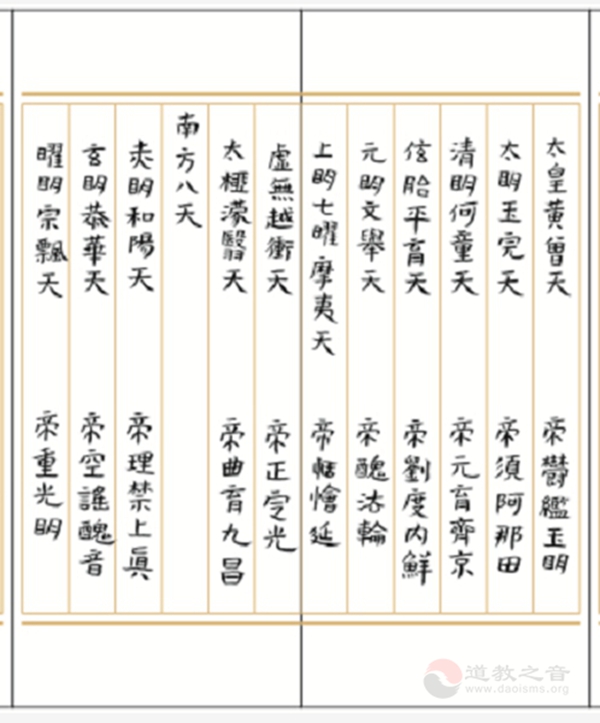 太皇黃曾天 帝鬱鑑玉明
太明玉完天 帝須阿那田
清明何童天 帝元育齊京
伭胎平育天 帝劉度內鮮
元明文舉天 帝醜法輪
上明七曜摩夷天 帝恬懀延
虛無越衡天 帝正定光
太極濛翳天 帝曲育九昌
南方八天
赤明和陽天 帝理禁上眞
玄明恭華天 帝空謠醜音
曜明宗飄天 帝重光明
道教之音
www.daoisms.org